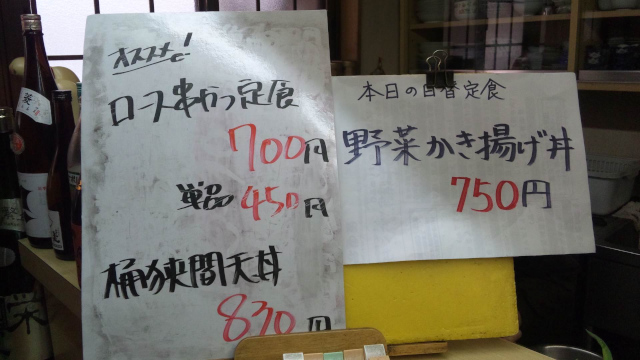 オススメ!
ロース串かつ定食
700円
単品 450円
桶狭間天丼
830円
本日の日替定食
野菜かき揚げ丼
750円